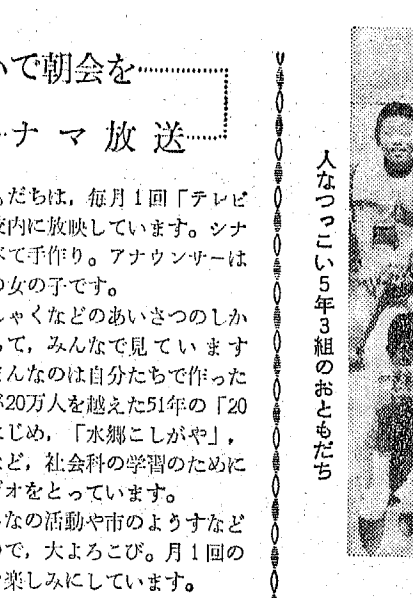 いで朝会を
ナマ放送
もだちは，毎月1回「テレビ
校内に放映しています。シナ
べて手作り。アナウンサーは
の女の子です。
しゃくなどのあいさつのしか
って，みんなで見ています
さんなのは自分たちで作った
が20万人を越えた51年の「20
はじめ，「水郷こしがや」，
など，社会科の学習のために
デオをとっています。
なの活動や市のようすなど
ので，大よろこび。月1回の
楽しみにしています。
人なつっこい5年3組のおともだち